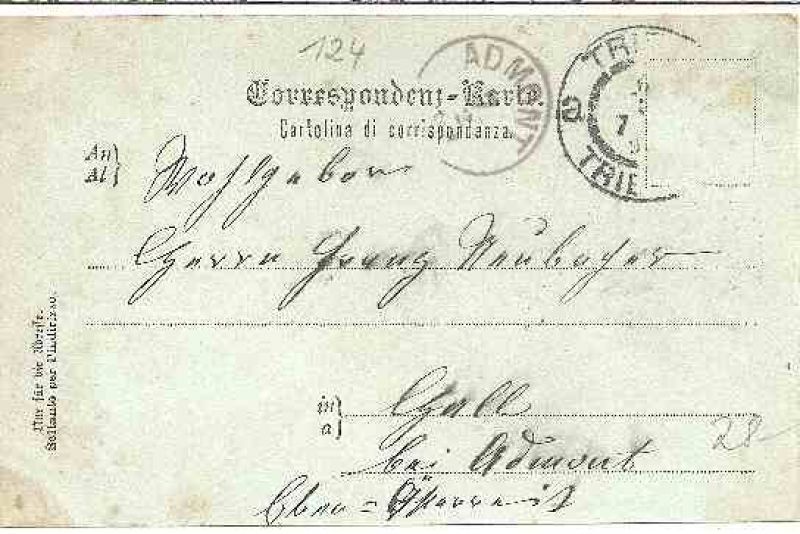 124
ADMONT
TRIE
7
TRIE
Correspondenz-Karte.
Cartolina di corrispondenza.
An
Al
Wohlgeboren
Herrn Franz Neubacher
in
a
Hall
bei Admont
Ober-Österreich
28-
Nur für die Adresse.
Soltanto per l'indirizzo.